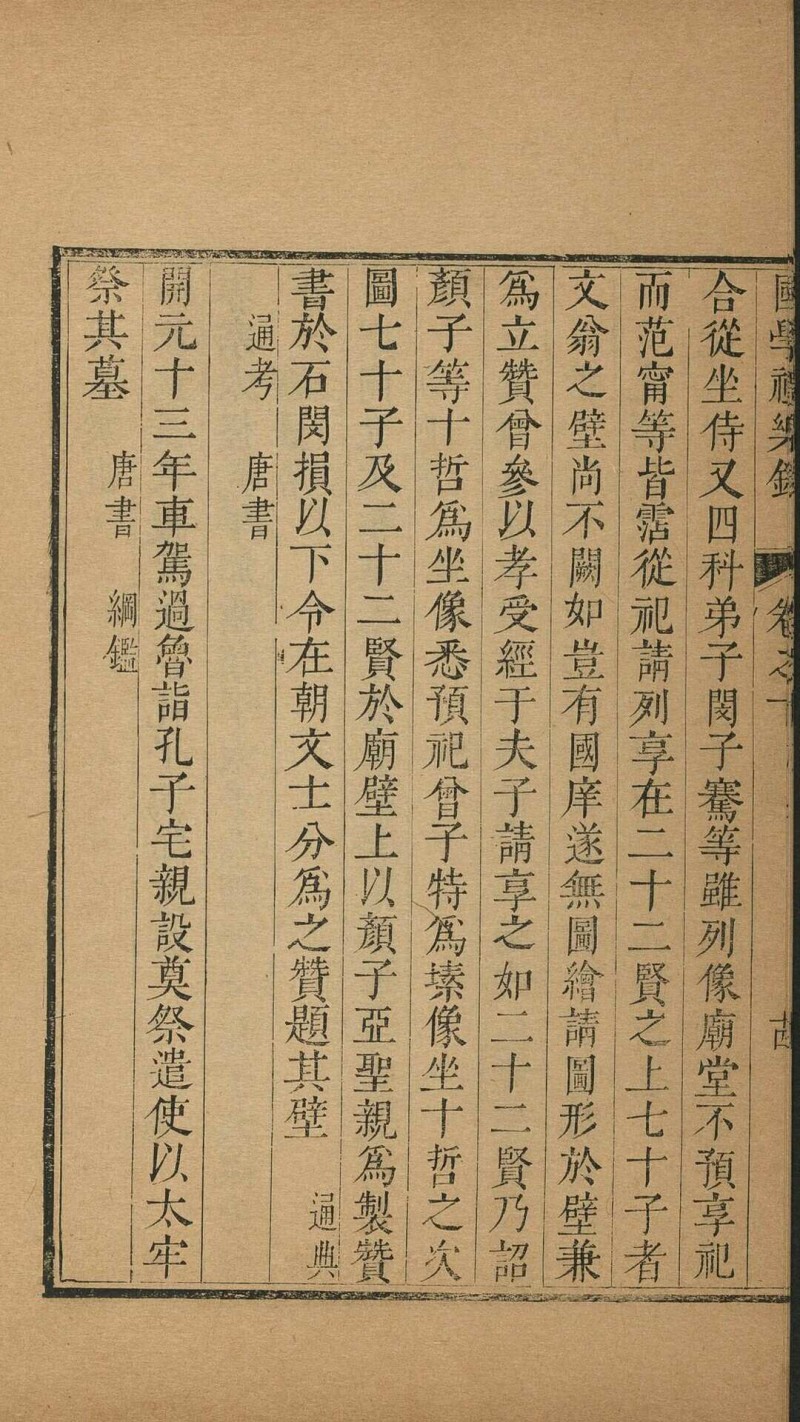 國學禮樂錄 卷之十
合從坐侍又四科弟子閔子騫等雖列像廟堂不預享祀
而范甯等皆霑從祀請列享在二十二賢之上七十子者
文翁之壁尚不闕如豈有國庠遂無圖繪請圖形於壁兼
爲立贊曾參以孝受經于夫子請享之如二十二賢乃詔
顏子等十哲爲坐像悉預祀曾子特爲塐像坐十哲之次
圖七十子及二十二賢於廟壁上以顏子亞聖親爲製贊
書於石閔損以下令在朝文士分爲之贊題其壁 通典
通考 唐書
開元十三年車駕過魯詣孔子宅親設奠祭遣使以太牢
祭其墓 唐書 綱鑑